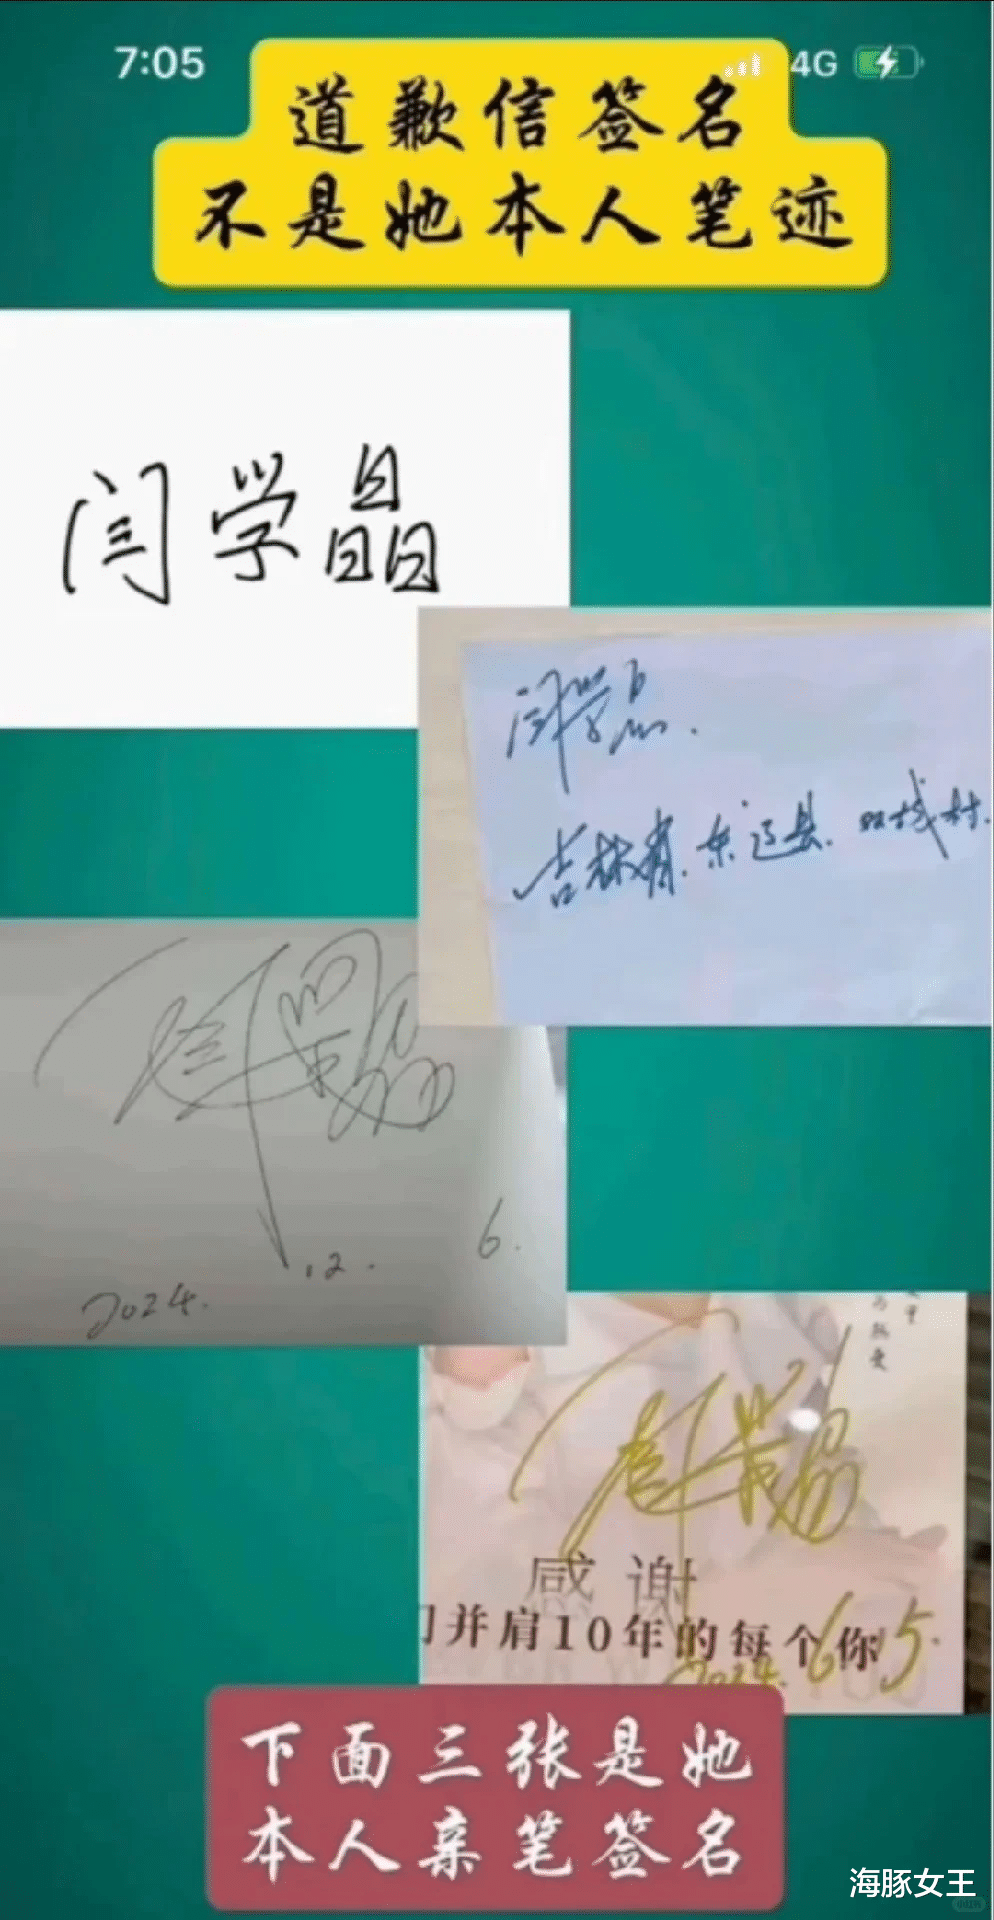 7:05 4G
道歉信签名
不是她本人笔迹
闫学晶
闫学晶.
吉林省.东辽县.双城村.
闫学晶
2024. .12. 6.
与热爱
闫学晶
感谢
门并肩10年的每个你
2024. 6.15.
下面三张是她
本人亲笔签名
海豚女王